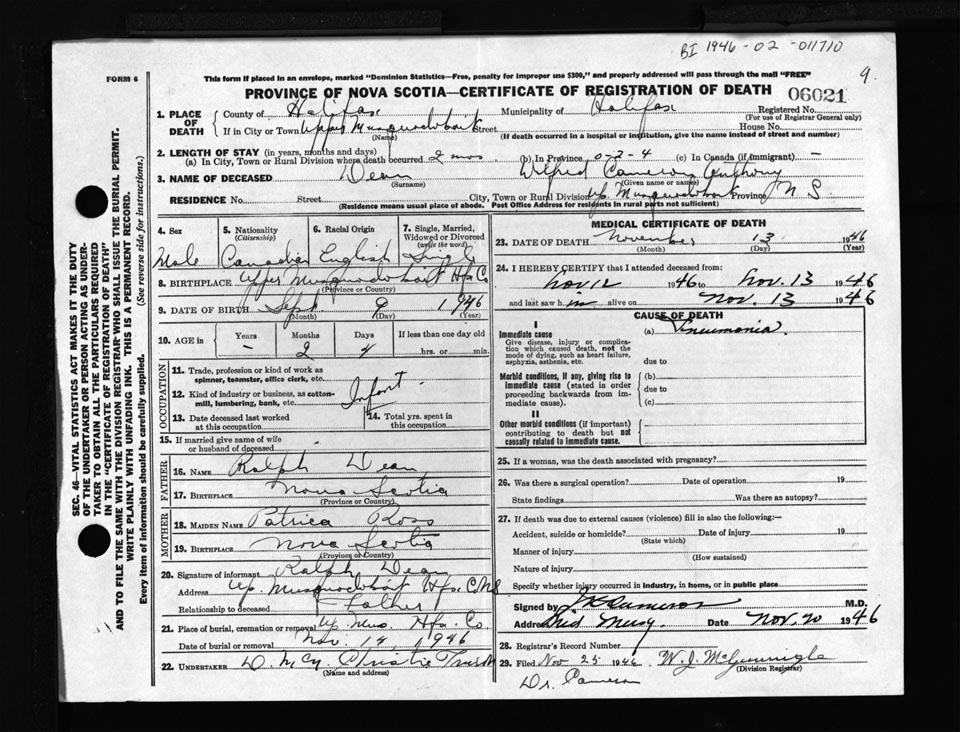 BI 1946-02-011710
9.
FORM 6
This form if placed in an envelope, marked "Dominion Statistics—Free, penalty for improper use $300," and properly addressed will pass through the mail "FREE"
PROVINCE OF NOVA SCOTIA—CERTIFICATE OF REGISTRATION OF DEATH
06021
1. PLACE OF DEATH
County of Halifax Municipality of Halifax Registered No.
(For use of Registrar General only)
If in City or Town Upper Musquodoboit Street House No.
(Name) (If death occurred in a hospital or institution, give the name instead of street and number)
2. LENGTH OF STAY (in years, months and days)
(a) In City, Town or Rural Division where death occurred 2 mos (b) In Province 0-2-4 (c) In Canada (if immigrant) —
3. NAME OF DECEASED Dean Wilfred Cameron Anthony
(Surname) (Given name or names)
RESIDENCE No. Street City, Town or Rural Division Up. Musquodoboit Province N S.
(Residence means usual place of abode. Post Office Address for residents in rural parts not sufficient)
4. Sex Male
5. Nationality (Citizenship) Canadian
6. Racial Origin English
7. Single, Married, Widowed or Divorced (write the word) Single
8. BIRTHPLACE Upper Musquodoboit Hfx Co
(Province or Country)
9. DATE OF BIRTH Sept 9 1946
(Month) (Day) (Year)
10. AGE in Years Months Days If less than one day old
— 2 4 hrs. or min.
OCCUPATION
11. Trade, profession or kind of work as spinner, teamster, office clerk, etc.
12. Kind of industry or business, as cotton-mill, lumbering, bank, etc.
Infant
13. Date deceased last worked at this occupation
14. Total yrs. spent in this occupation
15. If married give name of wife or husband of deceased
FATHER
16. NAME Ralph Dean
17. BIRTHPLACE Nova Scotia
(Province or Country)
MOTHER
18. MAIDEN NAME Patrica Ross
19. BIRTHPLACE Nova Scotia
(Province or Country)
20. Signature of informant Ralph Dean
Address Up. Musquodoboit Hfx. Co N S
Relationship to deceased Father
21. Place of burial, cremation or removal Up. Mus. Hfx. Co.
Date of burial or removal Nov. 14 1946
22. UNDERTAKER D. McQ. Christie Truro
(Name and address)
MEDICAL CERTIFICATE OF DEATH
23. DATE OF DEATH November 13 1946
(Month) (Day) (Year)
24. I HEREBY CERTIFY that I attended deceased from:
Nov 12 1946 to Nov. 13 1946
and last saw him alive on Nov. 13 1946
CAUSE OF DEATH
I
Immediate cause (a) Pneumonia.
Give disease, injury or complication which caused death, not the mode of dying, such as heart failure, asphyxia, asthenia, etc.
due to
Morbid conditions, if any, giving rise to immediate cause (stated in order proceeding backwards from immediate cause).
(b)
due to
(c)
II
Other morbid conditions (if important) contributing to death but not causally related to immediate cause.
25. If a woman, was the death associated with pregnancy?
26. Was there a surgical operation? Date of operation 19
State findings Was there an autopsy?
27. If death was due to external causes (violence) fill in also the following:—
Accident, suicide or homicide? Date of injury 19
(State which)
Manner of injury
(How sustained)
Nature of injury
Specify whether injury occurred in industry, in home, or in public place
Signed by Cameron M.D.
Address Mid Musq. Date Nov. 20 1946
28. Registrar's Record Number
29. Filed Nov 25 1946 W. J. McGounigle
(Division Registrar)
Dr. Cameron
SEC. 46—VITAL STATISTICS ACT MAKES IT THE DUTY
OF THE UNDERTAKER OR PERSON ACTING AS UNDER-
TAKER TO OBTAIN ALL THE PARTICULARS REQUIRED
IN THE "CERTIFICATE OF REGISTRATION OF DEATH"
AND TO FILE THE SAME WITH THE DIVISION REGISTRAR WHO SHALL ISSUE THE BURIAL PERMIT.
WRITE PLAINLY WITH UNFADING INK. THIS IS A PERMANENT RECORD.
Every item of information should be carefully supplied. (See reverse side for instructions.)